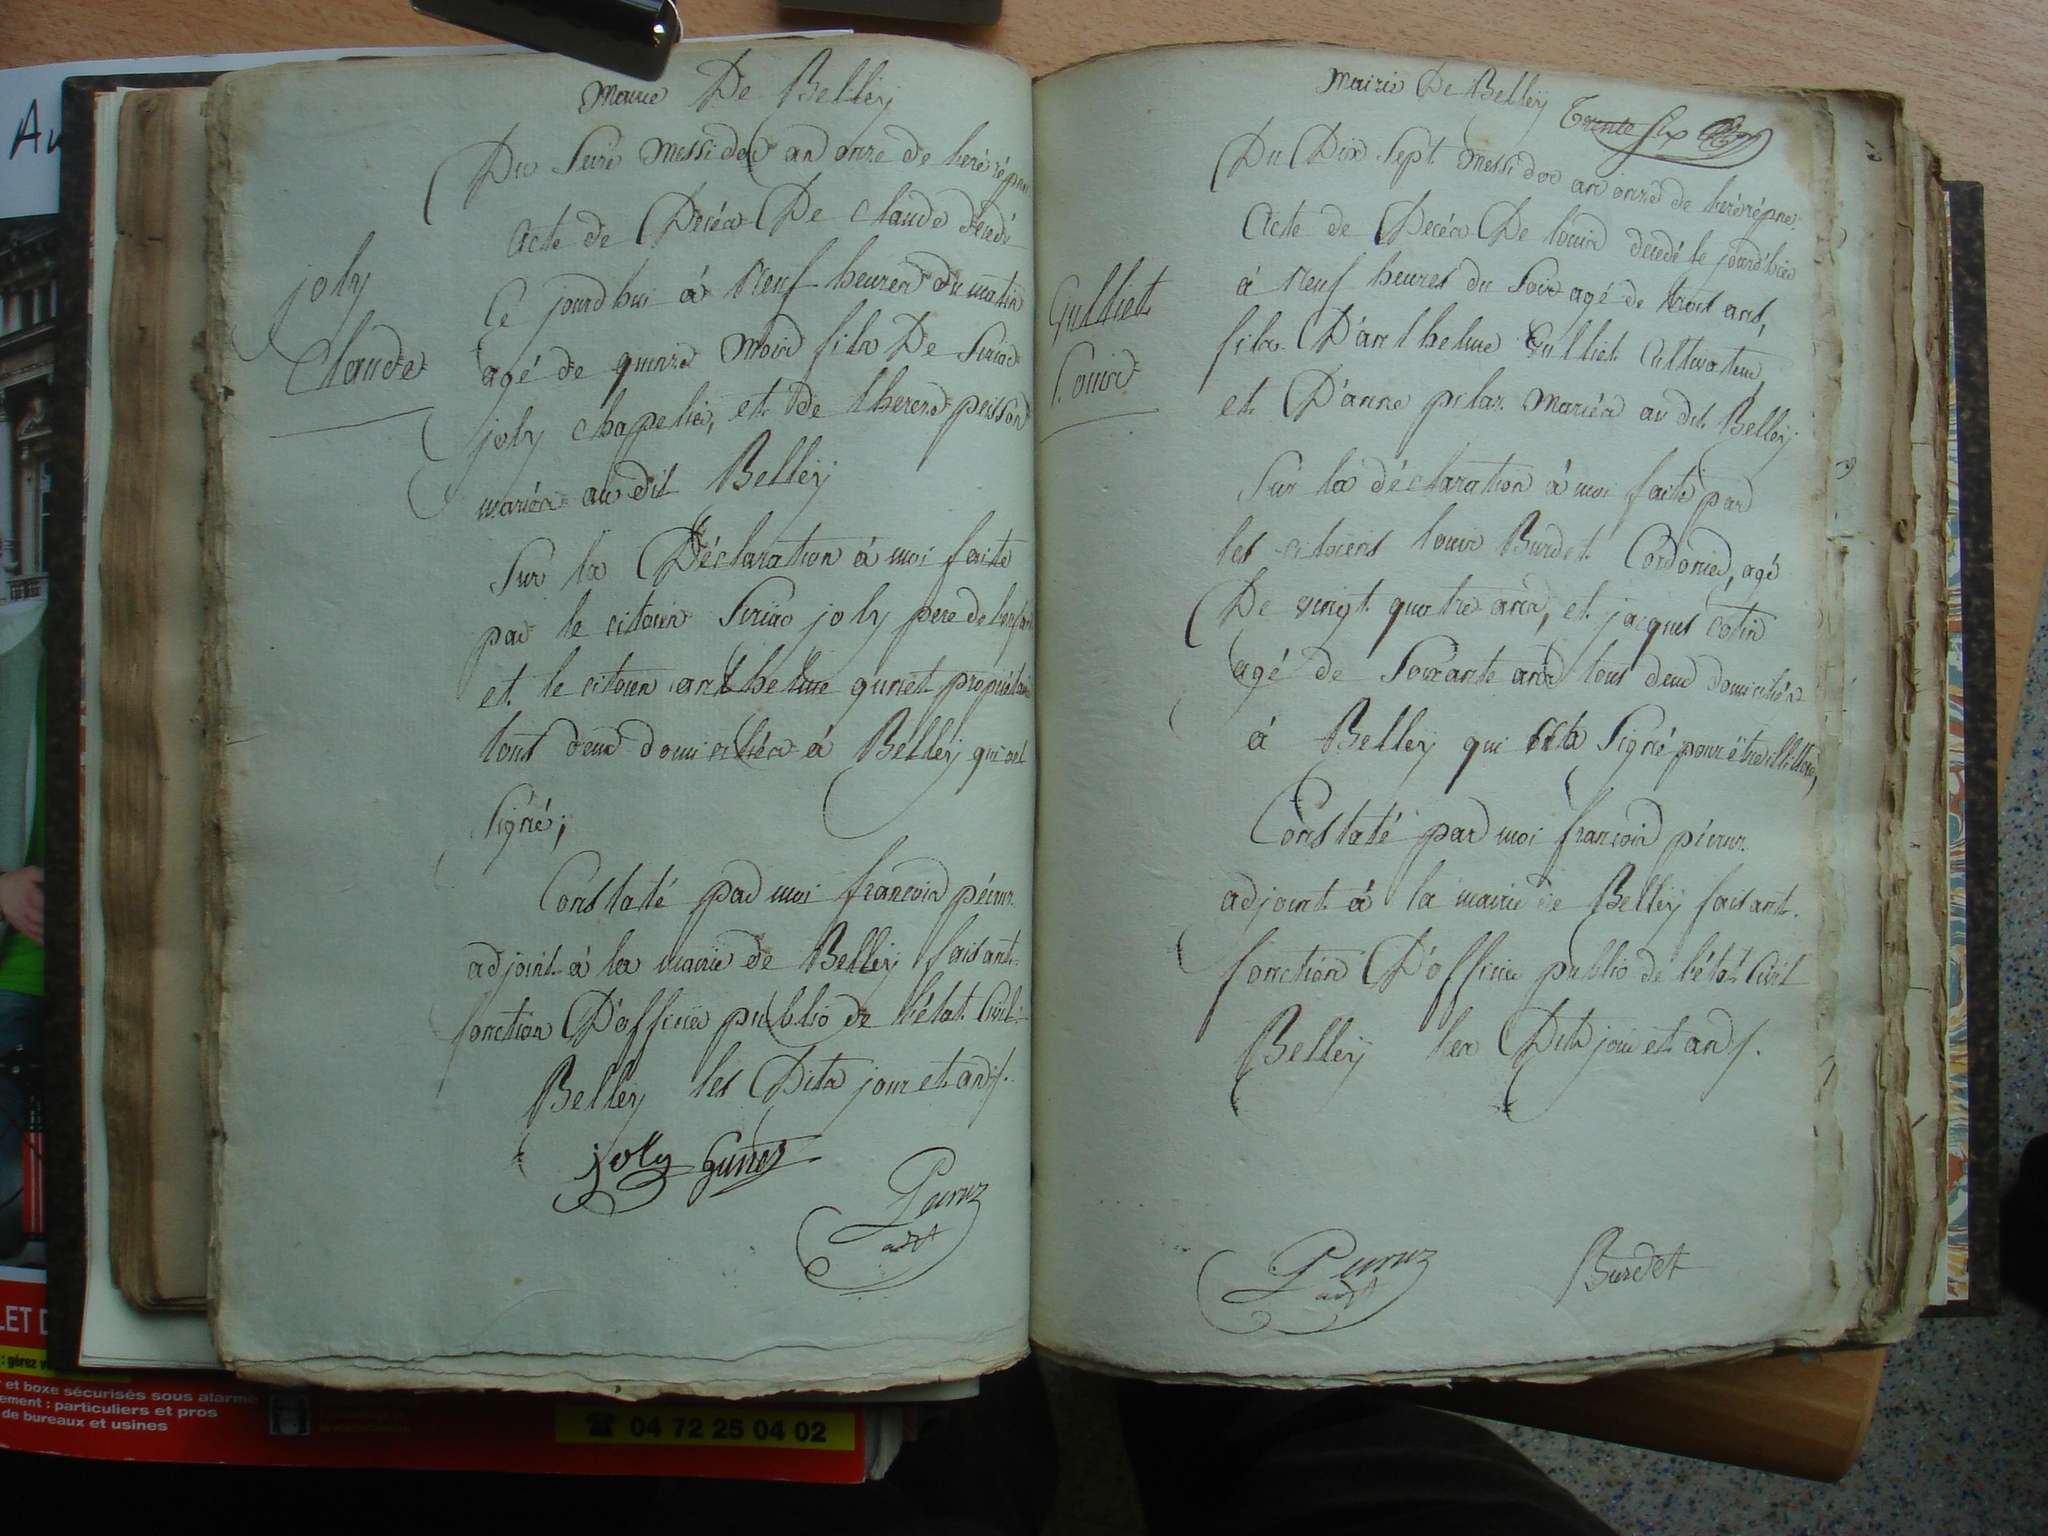 Mairie De Belleÿ
Du Seize Messidor an onze de l'ere répne
Acte de Décés De Claude décédé
Ce jourdhui á Neuf heures du matin
joly
Claude
agé de quinze Mois fils De Siriac
joly chapelier, et de therese peisson
mariés au dit Belleÿ
Sur la Déclaration á moi faite
par le citoien Siriac joly pere de l'enfant
et le citoien anthelme gunet propriétaire
tous deux domiciliés á Belleÿ qui ont
Signé,
Constaté par moi françois pérruz
adjoint á la mairie de Belleÿ faisant
fonction D'officier public de l'état Civil
Belleÿ les Dits jour et an
joly Gunet
Perruz
adjt
Mairie De Belleÿ
Trente Six
Du Dix Sept Messidor an onze de l'ere répne
Acte de Décés De louis decedé le jourd'hier
á Neuf heures du Soir agé de trois ans,
Gulliet
Louis
fils D'anthelme Gulliet Cultivateur
et D'anne pilaz Mariés au dit Belleÿ
Sur la déclaration á moi faite par
les citoiens louis Burdet Cordonier, agé
De vingt quatre ans, et jacques cotin
agé de Soixante ans tous deux domiciliés
á Belleÿ qui Signé pour être illitéré,
Constaté par moi françois pérruz
adjoint á la mairie de Belleÿ faisant
fonction D'officier public de l'état Civil
Belleÿ les Dits jour et an
Perruz
adjt
Burdet
LET D
: gérez v
et boxe sécurisés sous alarme
ement : particuliers et pros
de bureaux et usines
☎ 04 72 25 04 02